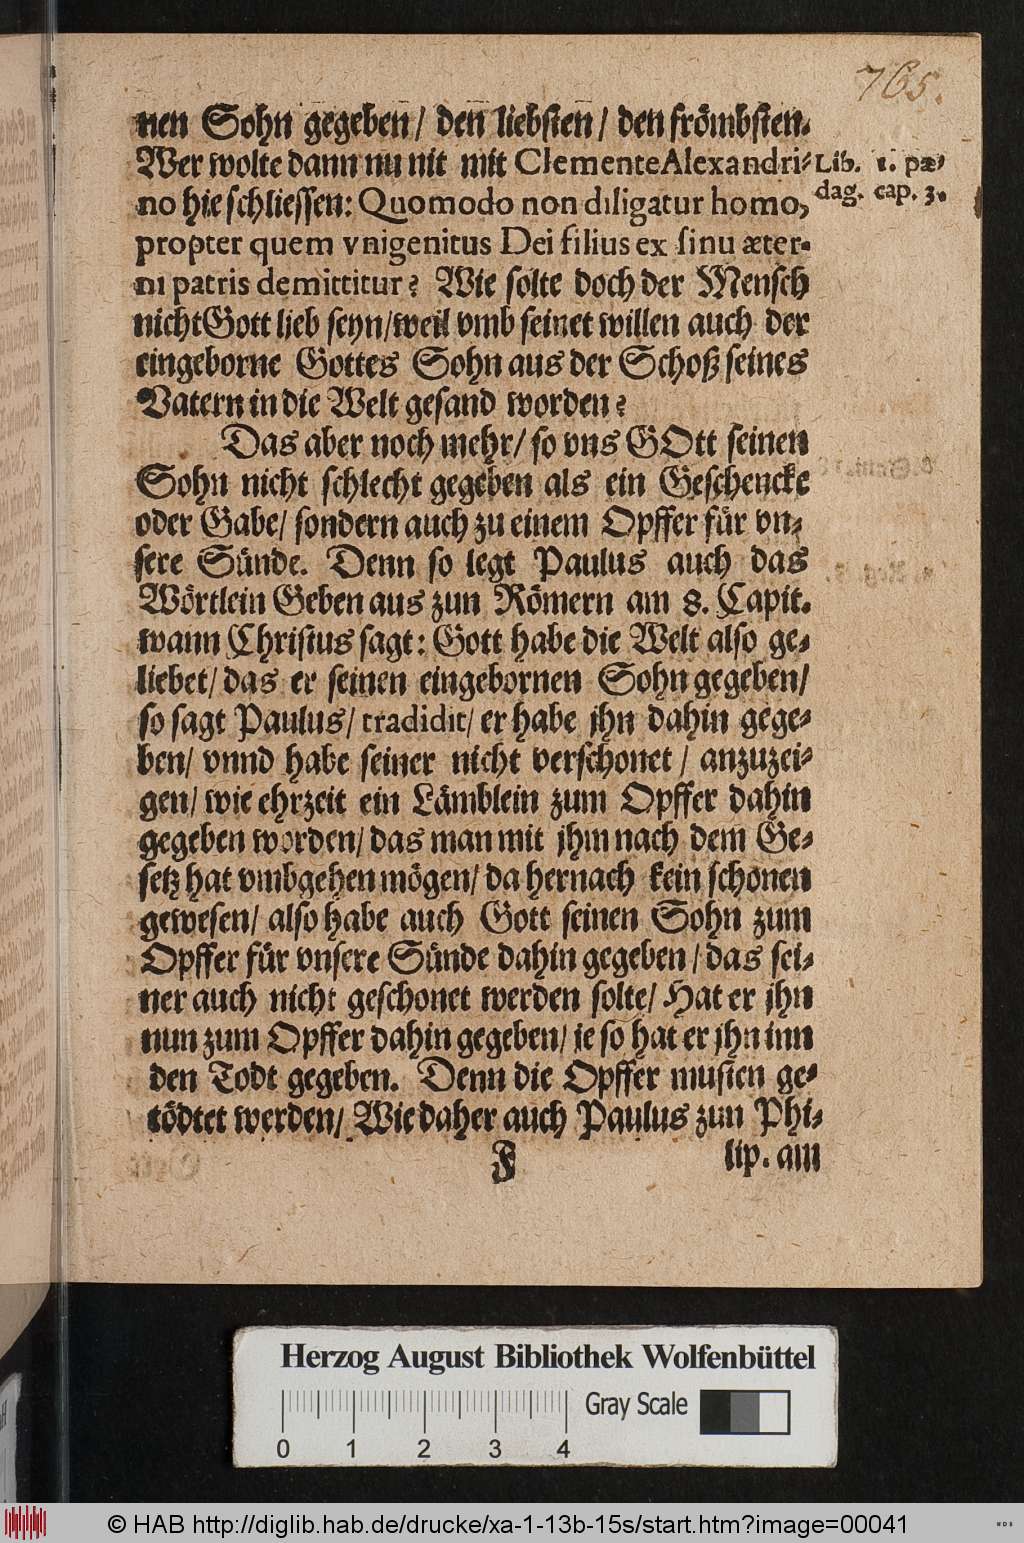 765.
nen Sohn gegeben/ den liebsten/ den frömbsten.
Wer wolte dann nu nit mit Clemente Alexandri-
no hie schliessen: Quomodo non diligatur homo,
propter quem vnigenitus Dei filius ex sinu æter-
ni patris demittitur? Wie solte doch der Mensch
nicht Gott lieb seyn/ weil vmb seinet willen auch der
eingeborne Gottes Sohn aus der Schoß seines
Vatern in die Welt gesand worden?
Lib. 1. pæ-
dag. cap. 3.
Das aber noch mehr/ so vns GOtt seinen
Sohn nicht schlecht gegeben als ein Geschencke
oder Gabe/ sondern auch zu einem Opffer für vn-
sere Sünde. Denn so legt Paulus auch das
Wörtlein Geben aus zun Römern am 8. Capit.
wann Christus sagt: Gott habe die Welt also ge-
liebet/ das er seinen eingebornen Sohn gegeben/
so sagt Paulus/ tradidit/ er habe jhn dahin gege-
ben/ vnnd habe seiner nicht verschonet/ anzuzei-
gen/ wie ehrzeit ein Lämblein zum Opffer dahin
gegeben worden/ das man mit jhm nach dem Ge-
setz hat vmbgehen mögen/ da hernach kein schonen
gewesen/ also habe auch Gott seinen Sohn zum
Opffer für vnsere Sünde dahin gegeben/ das sei-
ner auch nicht geschonet werden solte/ Hat er jhn
nun zum Opffer dahin gegeben/ je so hat er jhn inn
den Todt gegeben. Denn die Opffer musten ge-
tödtet werden/ Wie daher auch Paulus zun Phi-
F lip. am
Herzog August Bibliothek Wolfenbüttel
Gray Scale
0 1 2 3 4
© HAB http://diglib.hab.de/drucke/xa-1-13b-15s/start.htm?image=00041